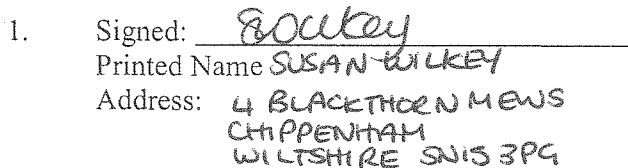 1. Signed: SWilkey
Printed Name SUSAN WILKEY
Address: 4 BLACKTHORN MEWS
CHIPPENHAM
WILTSHIRE SN15 3PG